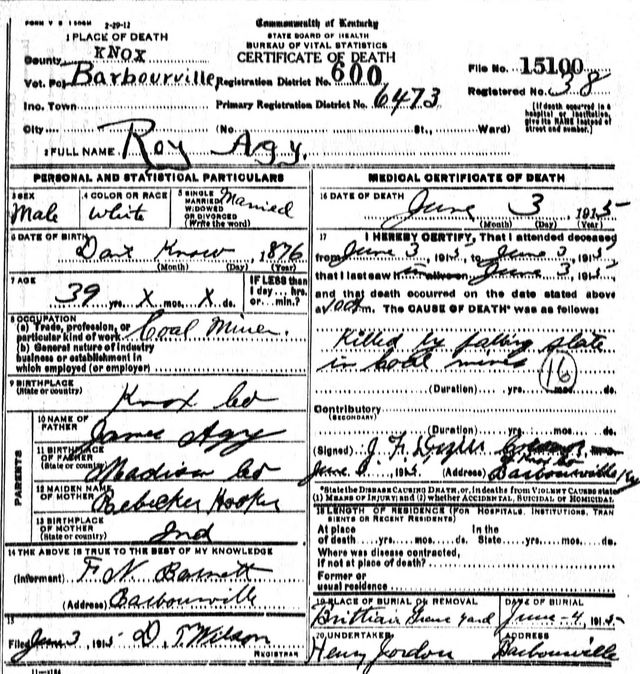 FORM V S 2-29-12
Commonwealth of Kentucky
STATE BOARD OF HEALTH
BUREAU OF VITAL STATISTICS
CERTIFICATE OF DEATH
1 PLACE OF DEATH
County KNOX
Vot. Pct Barbourville
Registration District No. 600
File No. 15100
Registered No. 38
Inc. Town
Primary Registration District No. 6473
[If death occurred in a hospital or institution, give its NAME instead of street and number.]
City (No. St., Ward)
2 FULL NAME Roy Agy.
PERSONAL AND STATISTICAL PARTICULARS
3 SEX Male
4 COLOR OR RACE White
5 SINGLE MARRIED WIDOWED OR DIVORCED (Write the word) Married
6 DATE OF BIRTH Dont Know, 1876
(Month) (Day) (Year)
7 AGE 39 yrs. X mos. X ds.
IF LESS than 1 day ... hrs. or ... min.?
8 OCCUPATION
(a) Trade, profession, or particular kind of work Coal Miner.
(b) General nature of industry
business or establishment in
which employed (or employer)
9 BIRTHPLACE
(State or country) Knox Co
PARENTS
10 NAME OF FATHER James Agy
11 BIRTHPLACE OF FATHER (State or country) Madison Co
12 MAIDEN NAME OF MOTHER Rebecker Hooker
13 BIRTHPLACE OF MOTHER (State or country) Ind
14 THE ABOVE IS TRUE TO THE BEST OF MY KNOWLEDGE
(Informant) F. N. Barnett
(Address) Barbourville
15
Filed June 3, 1915 D. T. Wilson
REGISTRAR
MEDICAL CERTIFICATE OF DEATH
16 DATE OF DEATH June 3 1915
(Month) (Day) (Year)
17 I HEREBY CERTIFY, That I attended deceased
from June 3, 1915, to June 3, 1915,
that I last saw June 3, 1915,
and that death occurred on the date stated above
at m. The CAUSE OF DEATH* was as follows:
Killed by falling slate
in coal mines
16
(Duration) yrs. mos. ds.
Contributory
(SECONDARY)
(Duration) yrs. mos. ds.
(Signed) J. F.
June, 1915 (Address) Barbourville Ky
*State the DISEASE CAUSING DEATH, or, in deaths from VIOLENT CAUSES state
(1) MEANS OF INJURY; and (2) whether ACCIDENTAL, SUICIDAL or HOMICIDAL.
18 LENGTH OF RESIDENCE (FOR HOSPITALS, INSTITUTIONS, TRANSIENTS OR RECENT RESIDENTS)
At place of death yrs. mos. ds. In the State yrs. mos. ds.
Where was disease contracted,
if not at place of death?
Former or
usual residence
19 PLACE OF BURIAL OR REMOVAL Grave yard
DATE OF BURIAL June-4, 1915
20 UNDERTAKER Henry Jordon
ADDRESS Barbourville